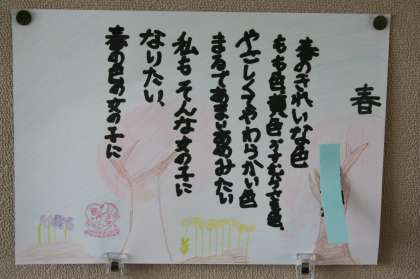 春
春のきれいな色
もも色、黄色、うすむらさき色、
やさしくてやわらかい色
まるであまいあめみたい
私もそんな女の子に
なりたい、
春の色の女の子に